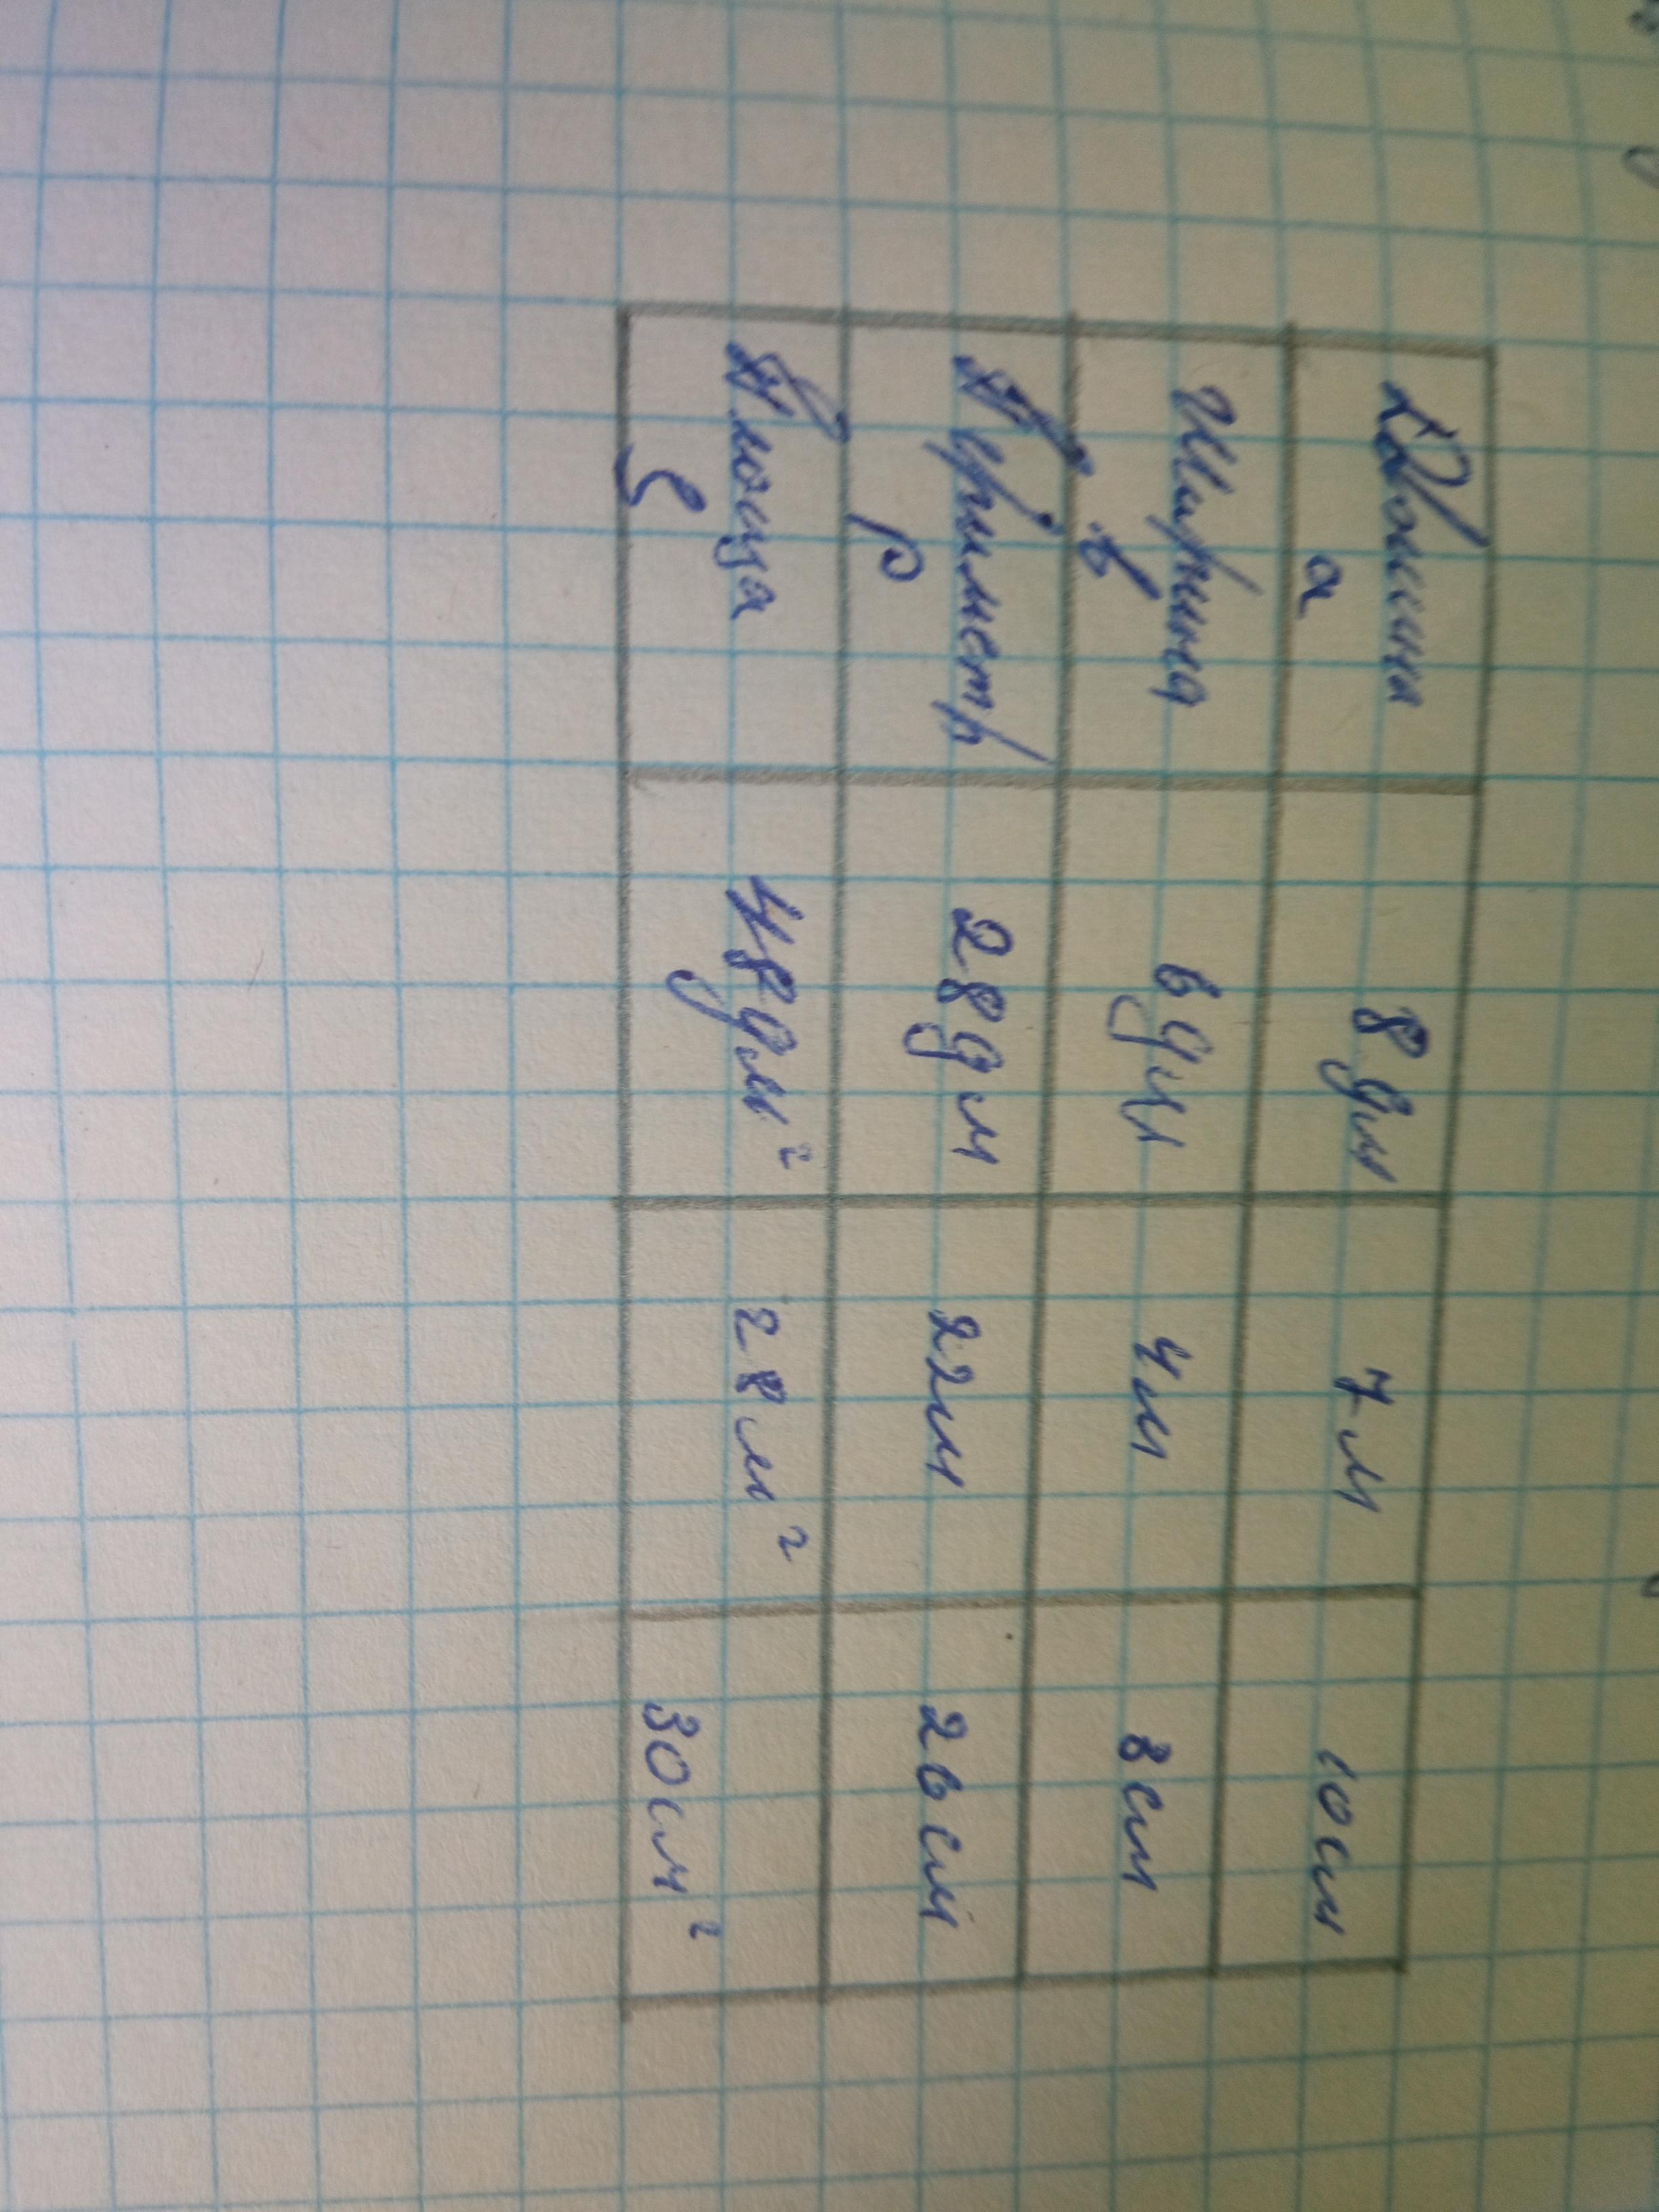 Довжина а 8 дм 7 м 10 см
Ширина в 6 дм 4 м 3 см
Периметр Р 28 дм 22 м 26 см
Площа S 48 дм² 28 м² 30 см²